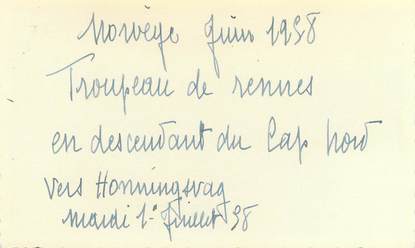 Norvège Juin 1958
Troupeau de rennes
en descendant du Cap Nord
vers Honningsvag
Mardi 1er Juillet 58